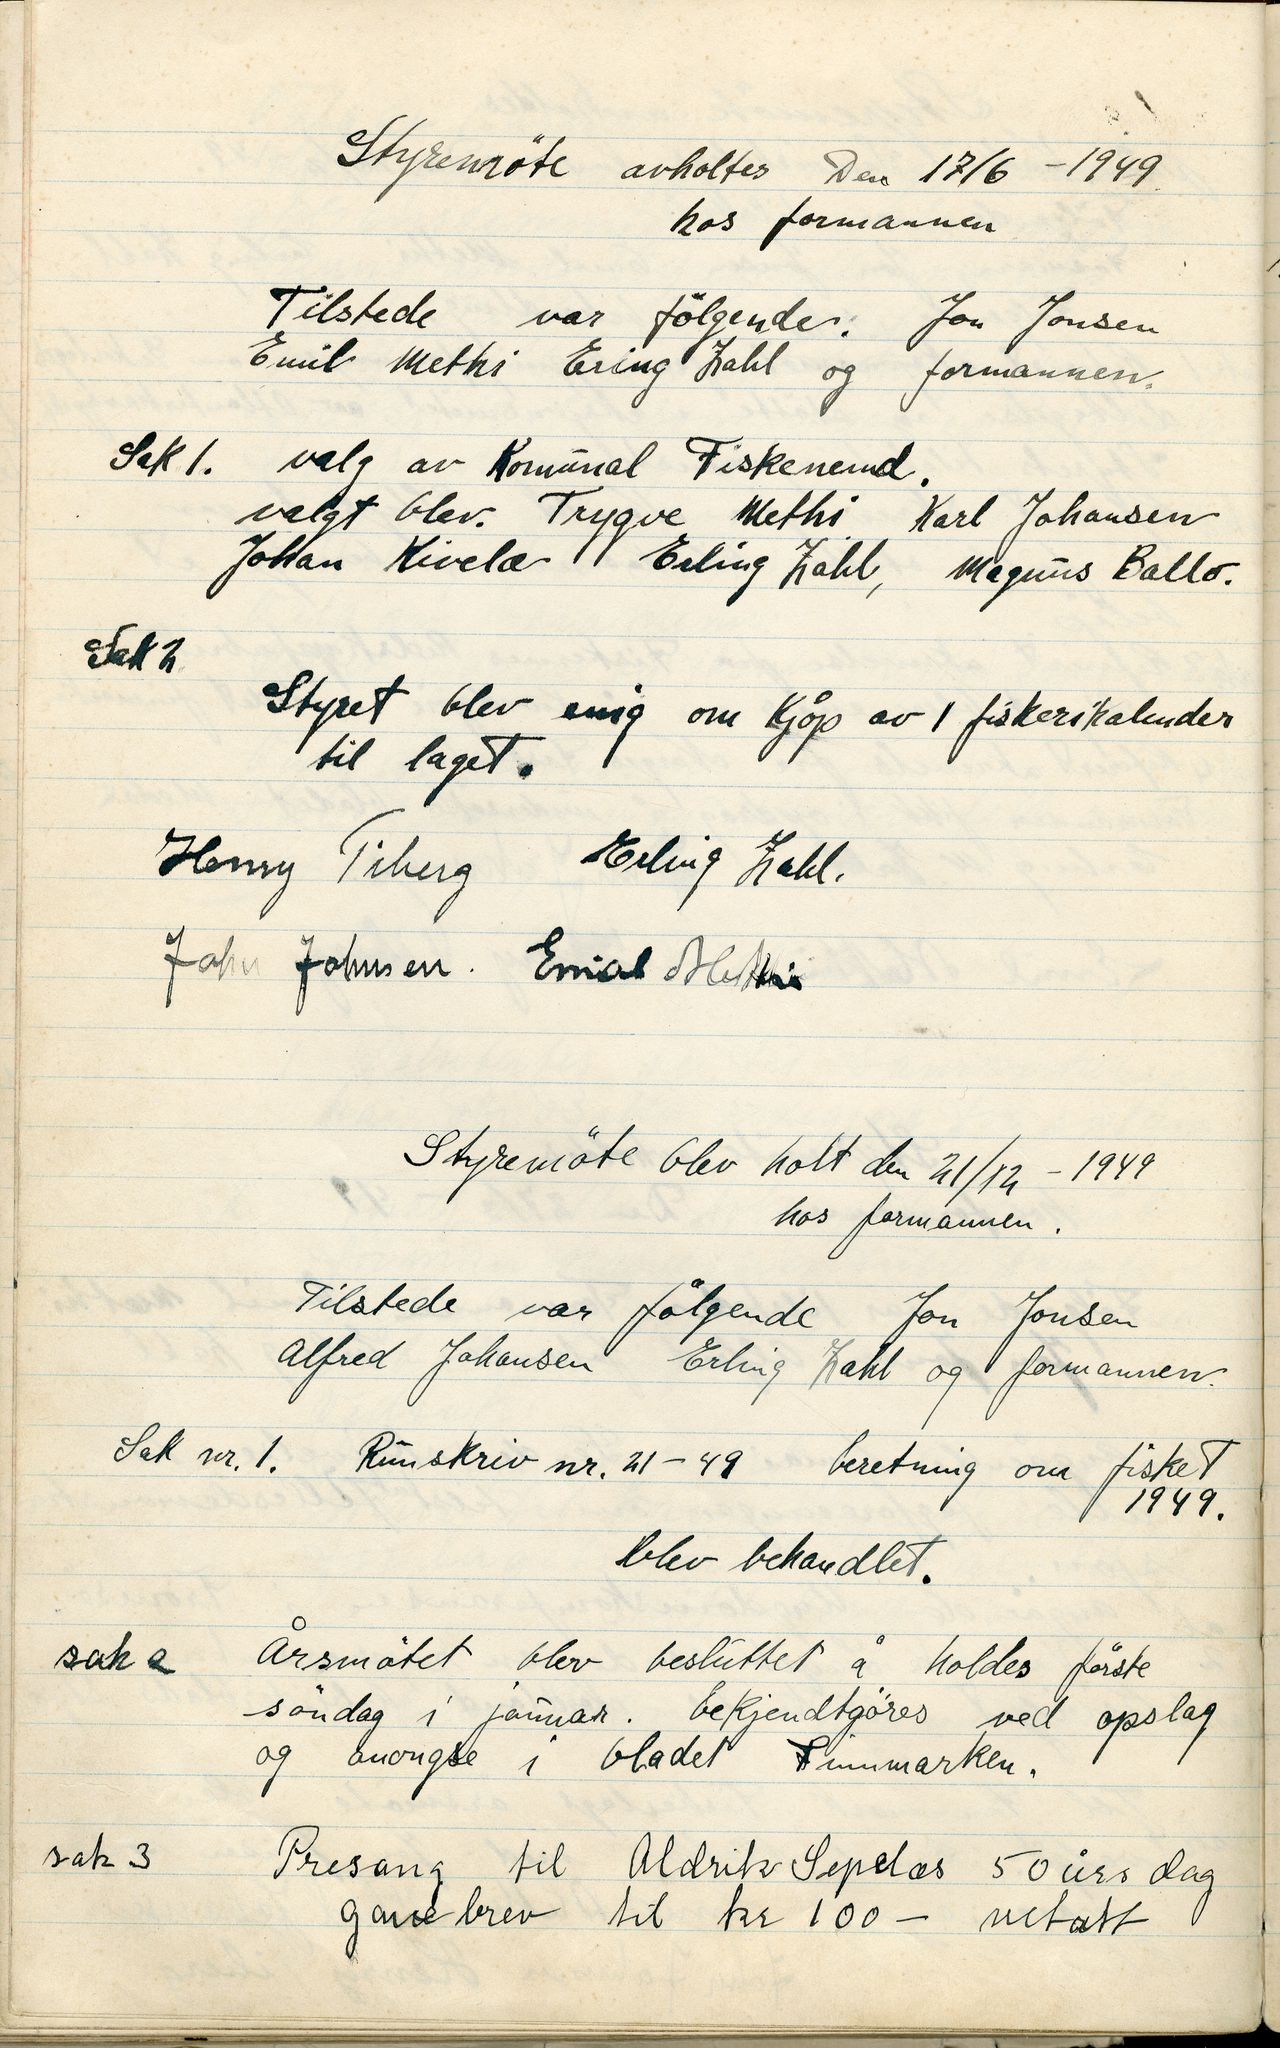 Styremöte avholtes Den 17/6 - 1949
hos formannen
Tilstede var fölgende. Jon Jonsen
Emil Methi Ering Zahl og formannen.
Sak 1. valg av Komunal Fiskenemd.
valgt blev. Trygve Methi Karl Johansen
Johan Kivelæ Erling Zahl, Magnus Ballo.
Sak 2
Styret blev enig om Kjåp av 1 fiskerikalender
til laget.
Henry Tiberg Erling Zahl.
John Johnsen. Emial Methi
Styremöte blev holt den 21/12 - 1949
hos formannen.
Tilstede var fålgende Jon Jonsen
Alfred Johansen Erling Zahl og formannen.
Sak nr. 1. Runskriv nr. 21-49 beretning om fisket
1949.
blev behandlet.
sak 2 Årsmötet blev besluttet å holdes förste
söndag i januar. bekjendtgöres ved opslag
og anongse i bladet Finnmarken.
sak 3 Presang til Aldrik Sepelæs 50 års dag
gavebrev til kr 100 - vetatt